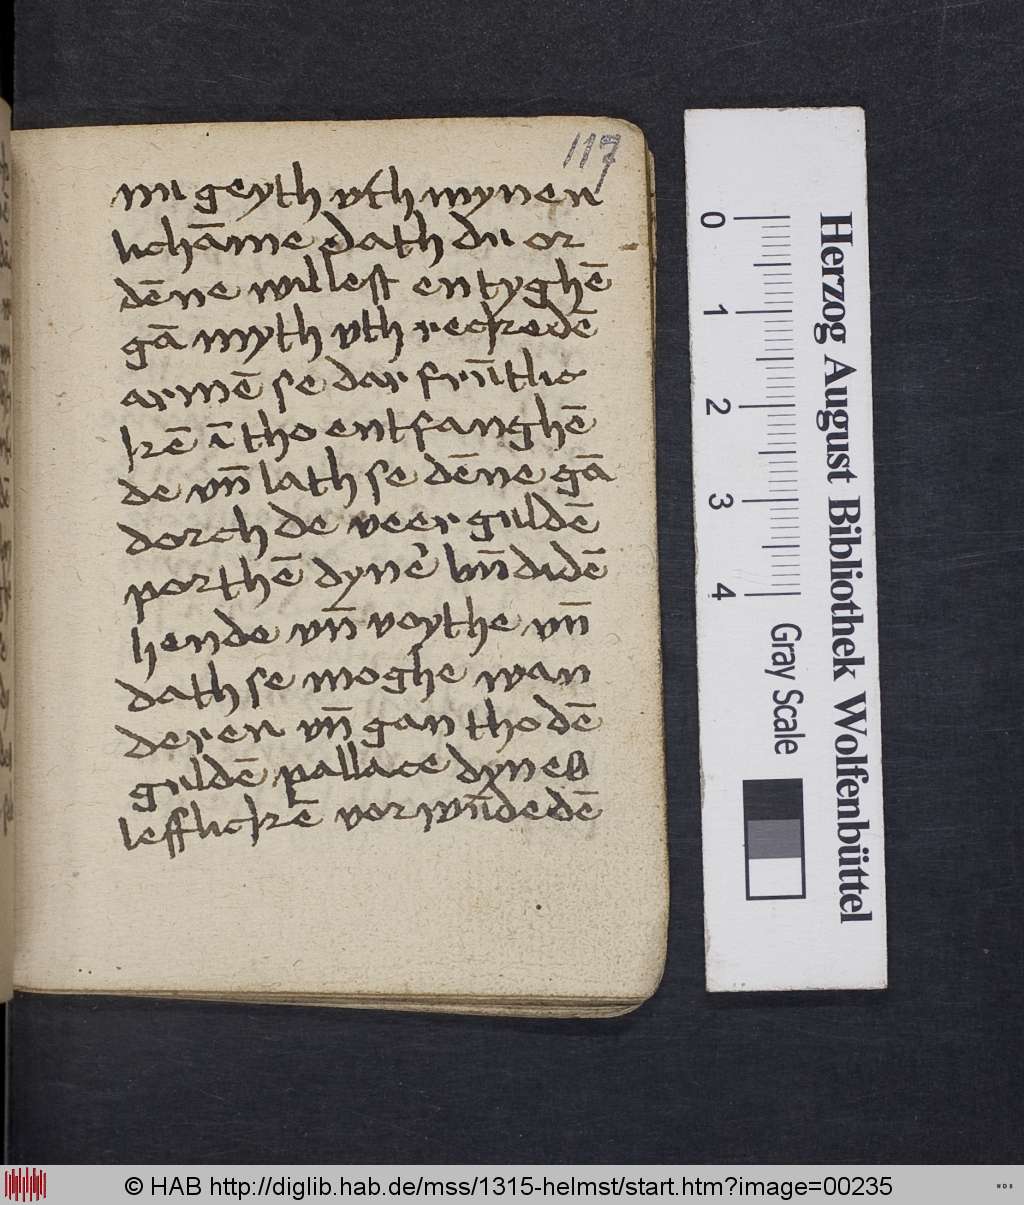 117
mi geyth vth mynen
lichāme dath du or
dēne willest entyghē
gā myth vth reckedē
armē se dar frūtlic
kē ī tho entfanghē
de vn̄ lath se dēne gā
dorch de veer guldē
porthē dyner bn̄didē
hende vn̄ voythe vn̄
dath se moghe wan
deren vn̄ gan tho dē
guldē pallace dynes
lefflickē vorwn̄dedē
0
1
2
3
4
Gray Scale
Herzog August Bibliothek Wolfenbüttel
© HAB http://diglib.hab.de/mss/1315-helmst/start.htm?image=00235